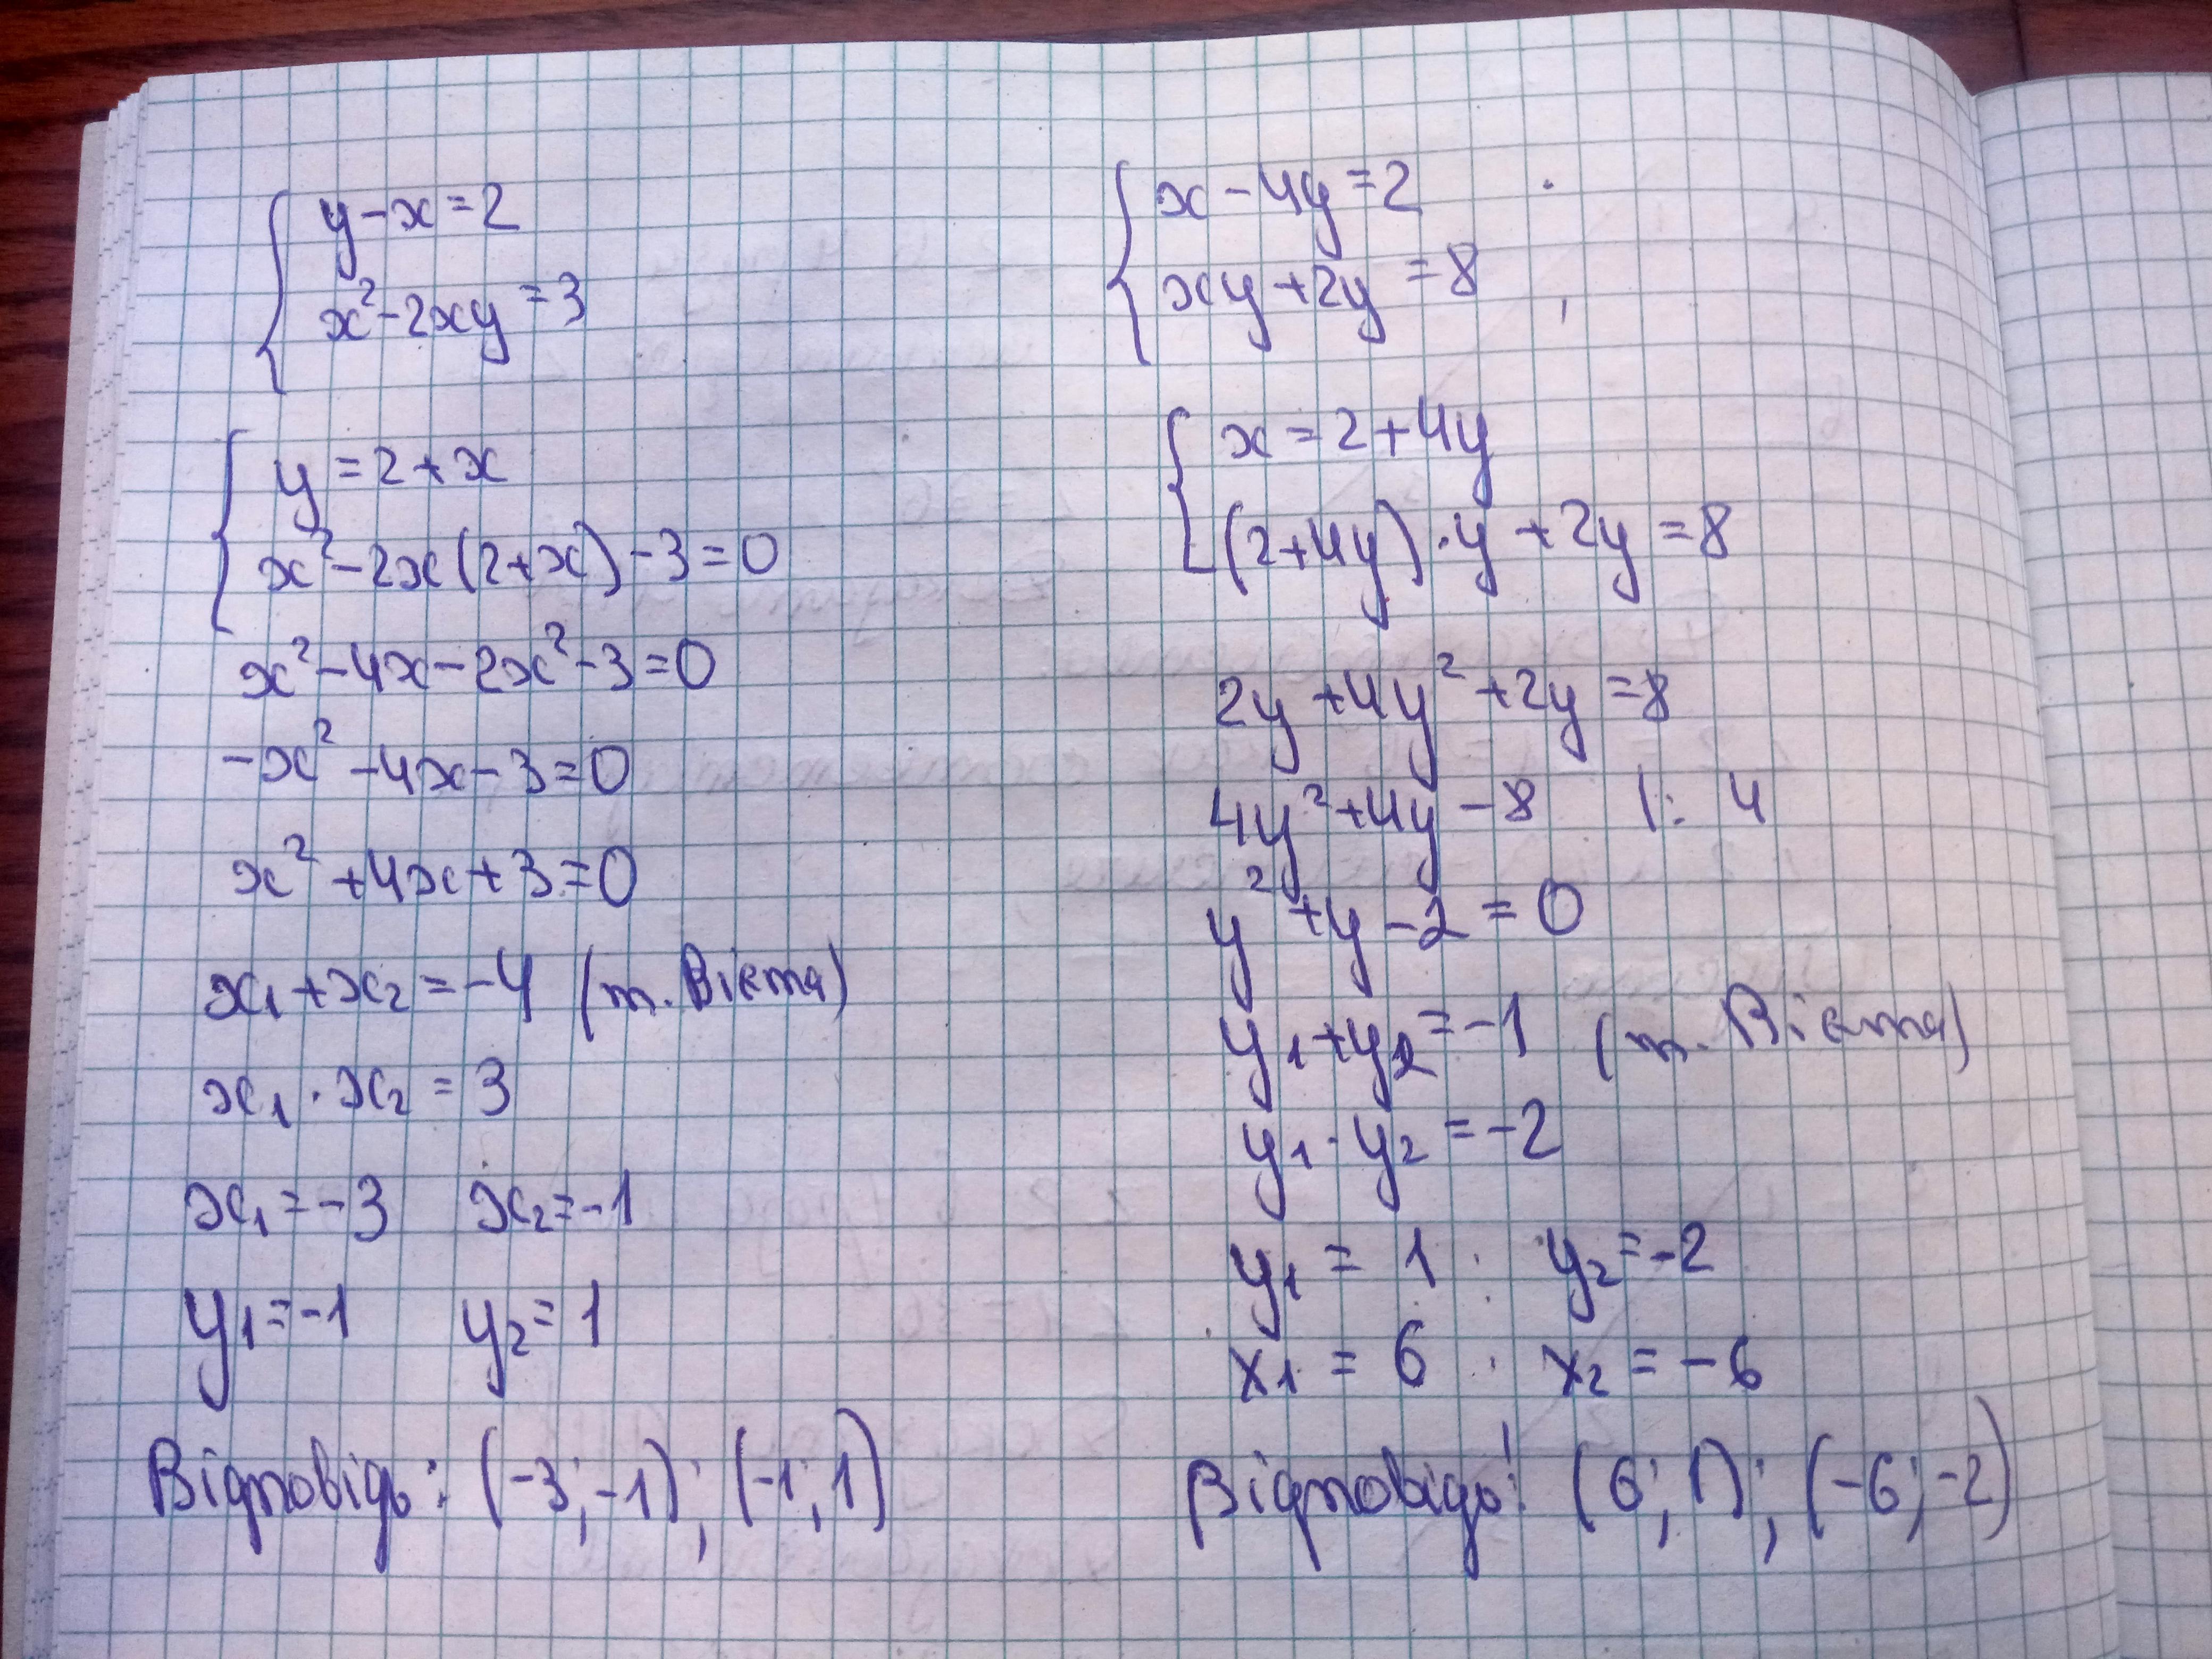 y-x=2
x²-2xy=3
y=2+x
x²-2x(2+x)-3=0
x²-4x-2x²-3=0
-x²-4x-3=0
x²+4x+3=0
x₁+x₂=-4 (т. Вієта)
x₁·x₂=3
x₁=-3 x₂=-1
y₁=-1 y₂=1
Відповідь: (-3;-1); (-1;1)
x-4y=2
xy+2y=8
x=2+4y
(2+4y)·y+2y=8
2y+4y²+2y=8
4y²+4y-8 |:4
y²+y-2=0
y₁+y₂=-1 (т. Вієта)
y₁·y₂=-2
y₁=1 y₂=-2
x₁=6 x₂=-6
Відповідь: (6;1); (-6;-2)